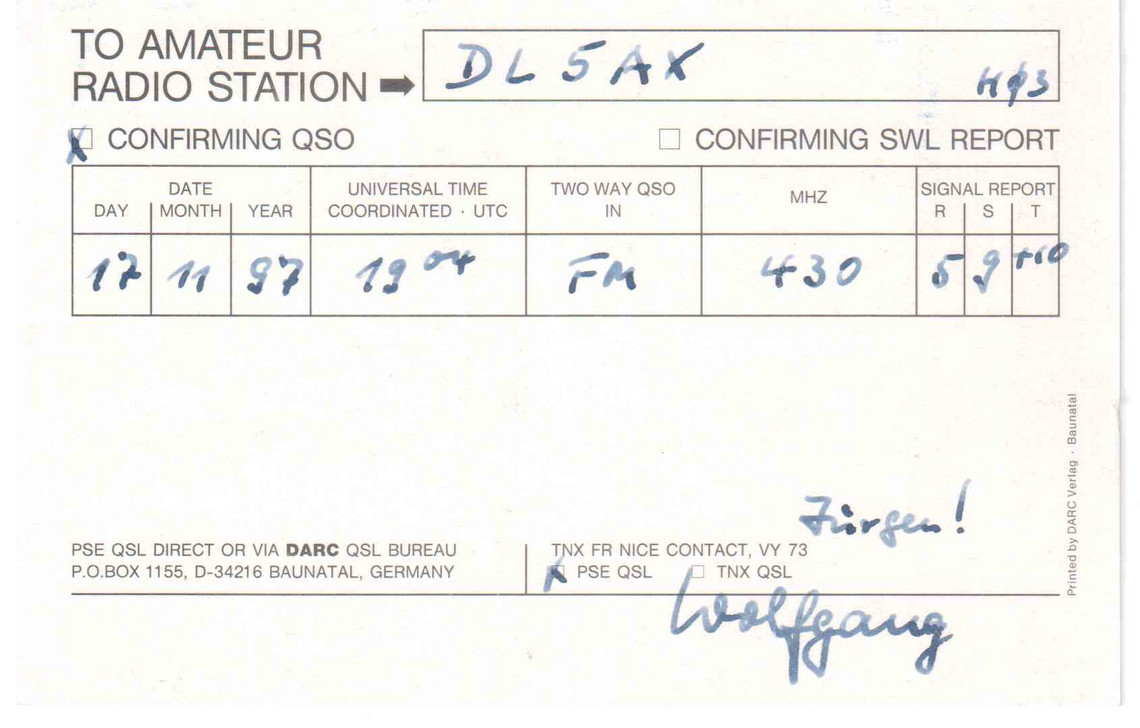 TO AMATEUR
RADIO STATION ➡ DL5AX HØ3
☒ CONFIRMING QSO ☐ CONFIRMING SWL REPORT
DATE UNIVERSAL TIME TWO WAY QSO MHZ SIGNAL REPORT
DAY MONTH YEAR COORDINATED · UTC IN R S T
17 11 97 19 04 FM 430 5 9 +10
Jürgen!
PSE QSL DIRECT OR VIA DARC QSL BUREAU TNX FR NICE CONTACT, VY 73
P.O.BOX 1155, D-34216 BAUNATAL, GERMANY ☒ PSE QSL ☐ TNX QSL
Wolfgang
Printed by DARC Verlag · Baunatal